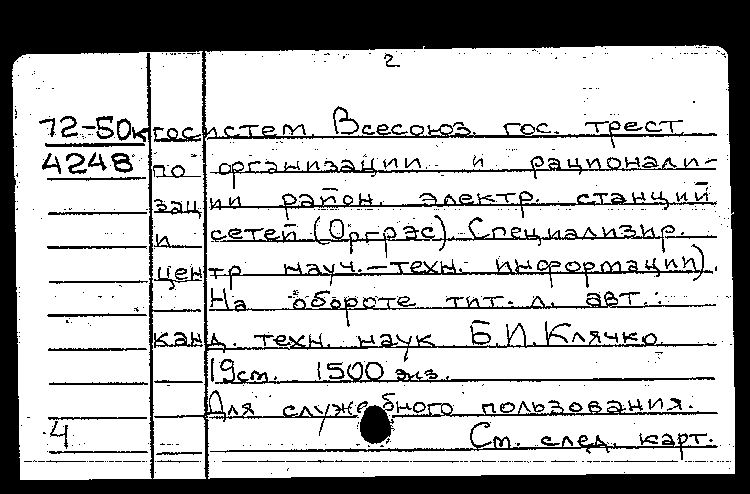 2
72-50к госистем. Всесоюз. гос. трест
4248 по организации и рационали-
зации район. электр. станций
и сетей (Оргрэс). Специализир.
центр науч.-техн. информации).
На обороте тит. л. авт.:
канд. техн. наук Б.И.Клячко.
19см. 1500 экз.
Для служебного пользования.
4 См. след. карт.